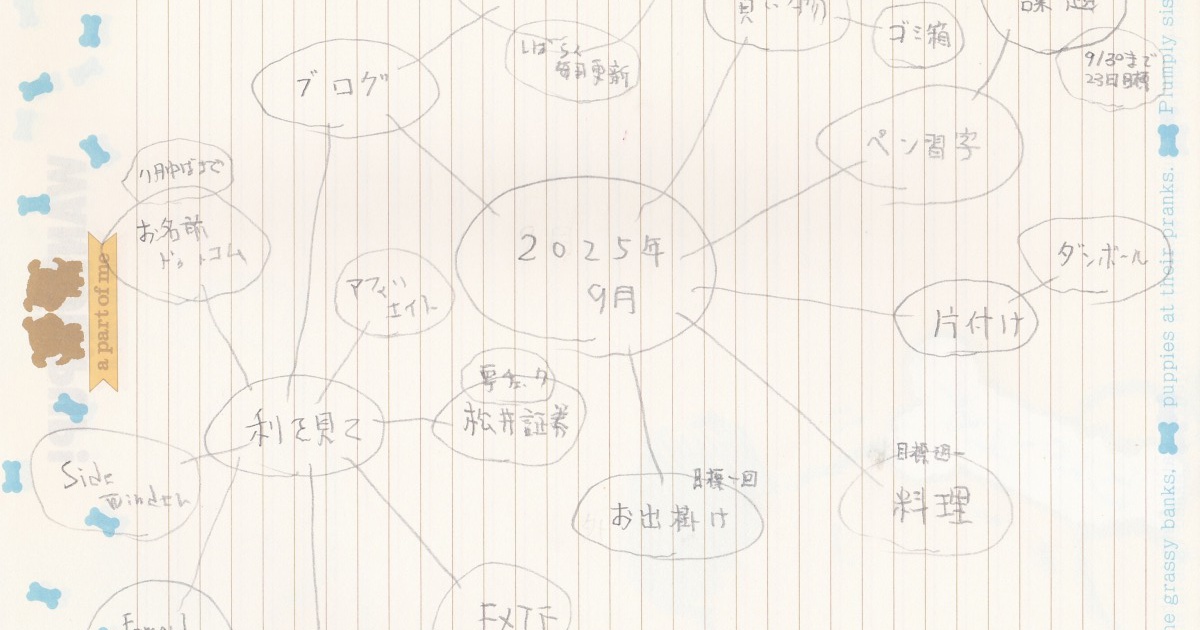 買い物
ゴミ箱
課題
9/30まで
23日目標
しばらく
毎日更新
ブログ
ペン習字
11月中ばまで
お名前
ドットコム
2025年
9月
ダンボール
片付け
エイト
要チェック
松井証券
利を見て
Side
winder
目標一回
お出掛け
目標週一
料理
FXTF
a part of me
Plumply sis
puppies at their pranks.
ne grassy banks,